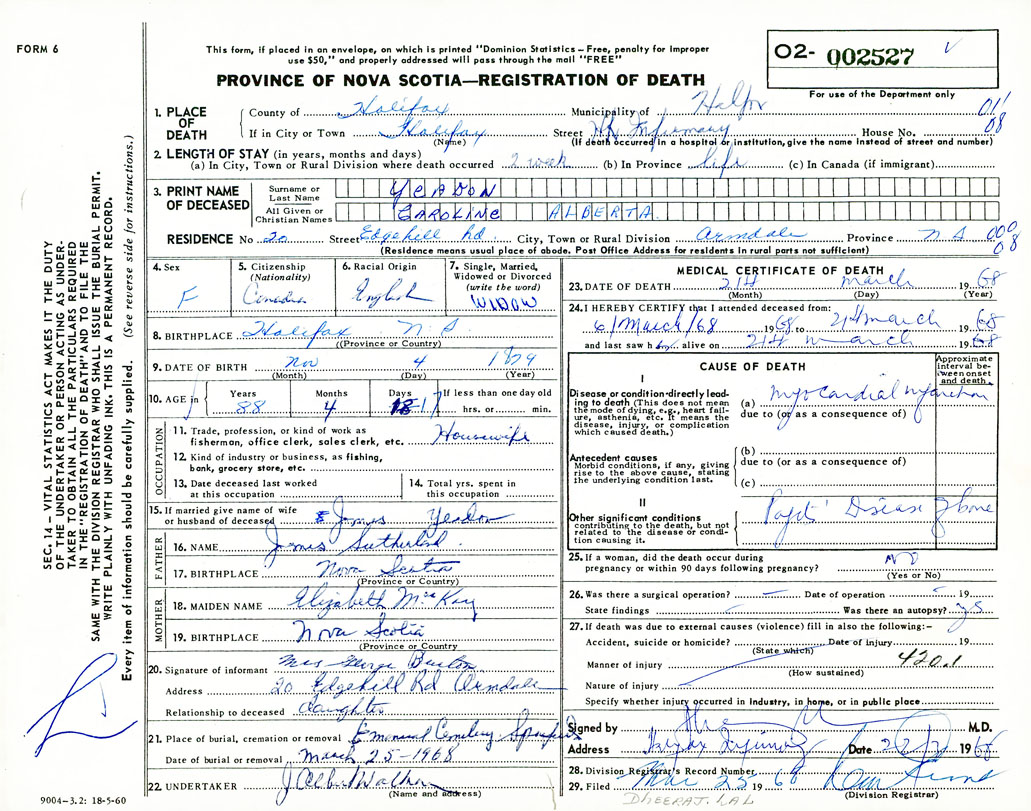 FORM 6
This form, if placed in an envelope, on which is printed "Dominion Statistics – Free, penalty for improper
use $50," and properly addressed will pass through the mail "FREE"
PROVINCE OF NOVA SCOTIA—REGISTRATION OF DEATH
O2- 002527
For use of the Department only
SEC. 14 – VITAL STATISTICS ACT MAKES IT THE DUTY
OF THE UNDERTAKER OR PERSON ACTING AS UNDER-
TAKER TO OBTAIN ALL THE PARTICULARS REQUIRED
IN THE "REGISTRATION OF DEATH" AND TO FILE THE
SAME WITH THE DIVISION REGISTRAR WHO SHALL ISSUE THE BURIAL PERMIT.
WRITE PLAINLY WITH UNFADING INK. THIS IS A PERMANENT RECORD.
Every item of information should be carefully supplied. (See reverse side for instructions.)
1. PLACE OF DEATH
County of Halifax Municipality of
If in City or Town Halifax Street Hx Infirmary House No. 08
(Name) (If death occurred in a hospital or institution, give the name instead of street and number)
2. LENGTH OF STAY (in years, months and days)
(a) In City, Town or Rural Division where death occurred 2 week (b) In Province life (c) In Canada (if immigrant)
3. PRINT NAME OF DECEASED
Surname or Last Name YEADON
All Given or Christian Names CAROLINE ALBERTA
RESIDENCE No 20 Street Edgehill Rd. City, Town or Rural Division Armdale Province N S 08
(Residence means usual place of abode. Post Office Address for residents in rural parts not sufficient)
4. Sex F
5. Citizenship (Nationality) Canadian
6. Racial Origin English
7. Single, Married, Widowed or Divorced (write the word) WIDOW
8. BIRTHPLACE Halifax N. S.
(Province or Country)
9. DATE OF BIRTH Nov 4 1879
(Month) (Day) (Year)
10. AGE in Years 88 Months 4 Days 17 If less than one day old hrs. or min.
OCCUPATION
11. Trade, profession, or kind of work as
fishermon, office clerk, sales clerk, etc. Housewife
12. Kind of industry or business, as fishing,
bank, grocery store, etc.
13. Date deceased last worked
at this occupation
14. Total yrs. spent in
this occupation
15. If married give name of wife
or husband of deceased James Yeadon
FATHER
16. NAME James Sutherland
17. BIRTHPLACE Nova Scotia
(Province or Country)
MOTHER
18. MAIDEN NAME Elizabeth McKay
19. BIRTHPLACE Nova Scotia
(Province or Country
20. Signature of informant Mrs George
Address 20 Edgehill Rd Armdale
Relationship to deceased daughter
21. Place of burial, cremation or removal Emmanuel Cemetery
Date of burial or removal March 25-1968
22. UNDERTAKER J Albert Walker
(Name and address)
9004–3.2: 18-5-60
MEDICAL CERTIFICATE OF DEATH
23. DATE OF DEATH 21st March 1968
(Month) (Day) (Year)
24. I HEREBY CERTIFY that I attended deceased from:
6/March/68 1968 to 21st March 1968
and last saw h alive on 21st March 1968
CAUSE OF DEATH
Approximate interval between onset and death
I
Disease or condition directly lead-
ing to death (This does not mean
the mode of dying, e.g., heart fail-
ure, asthenia, etc. It means the
disease, injury, or complication
which caused death.)
(a) myocardial infarction
due to (or as a consequence of)
Antecedent causes
Morbid conditions, if any, giving
rise to the above cause, stating
the underlying condition last.
(b)
due to (or as a consequence of)
(c)
II
Other significant conditions
contributing to the death, but not
related to the disease or condi-
tion causing it.
Paget's Disease of bone
25. If a woman, did the death occur during
pregnancy or within 90 days following pregnancy? NO
(Yes or No)
26. Was there a surgical operation? – Date of operation – 19
State findings – Was there an autopsy? yes
27. If death was due to external causes (violence) fill in also the following:–
Accident, suicide or homicide? Date of injury 19
(State which)
Manner of injury 420.1
(How sustained)
Nature of injury
Specify whether injury occurred in Industry, in home, or in public place
Signed by M.D.
Address Halifax Infirmary Date 22/3/ 1968
28. Division Registrar's Record Number
29. Filed Mar 25 1968
(Division Registrar)
DHEERAJ. LAL